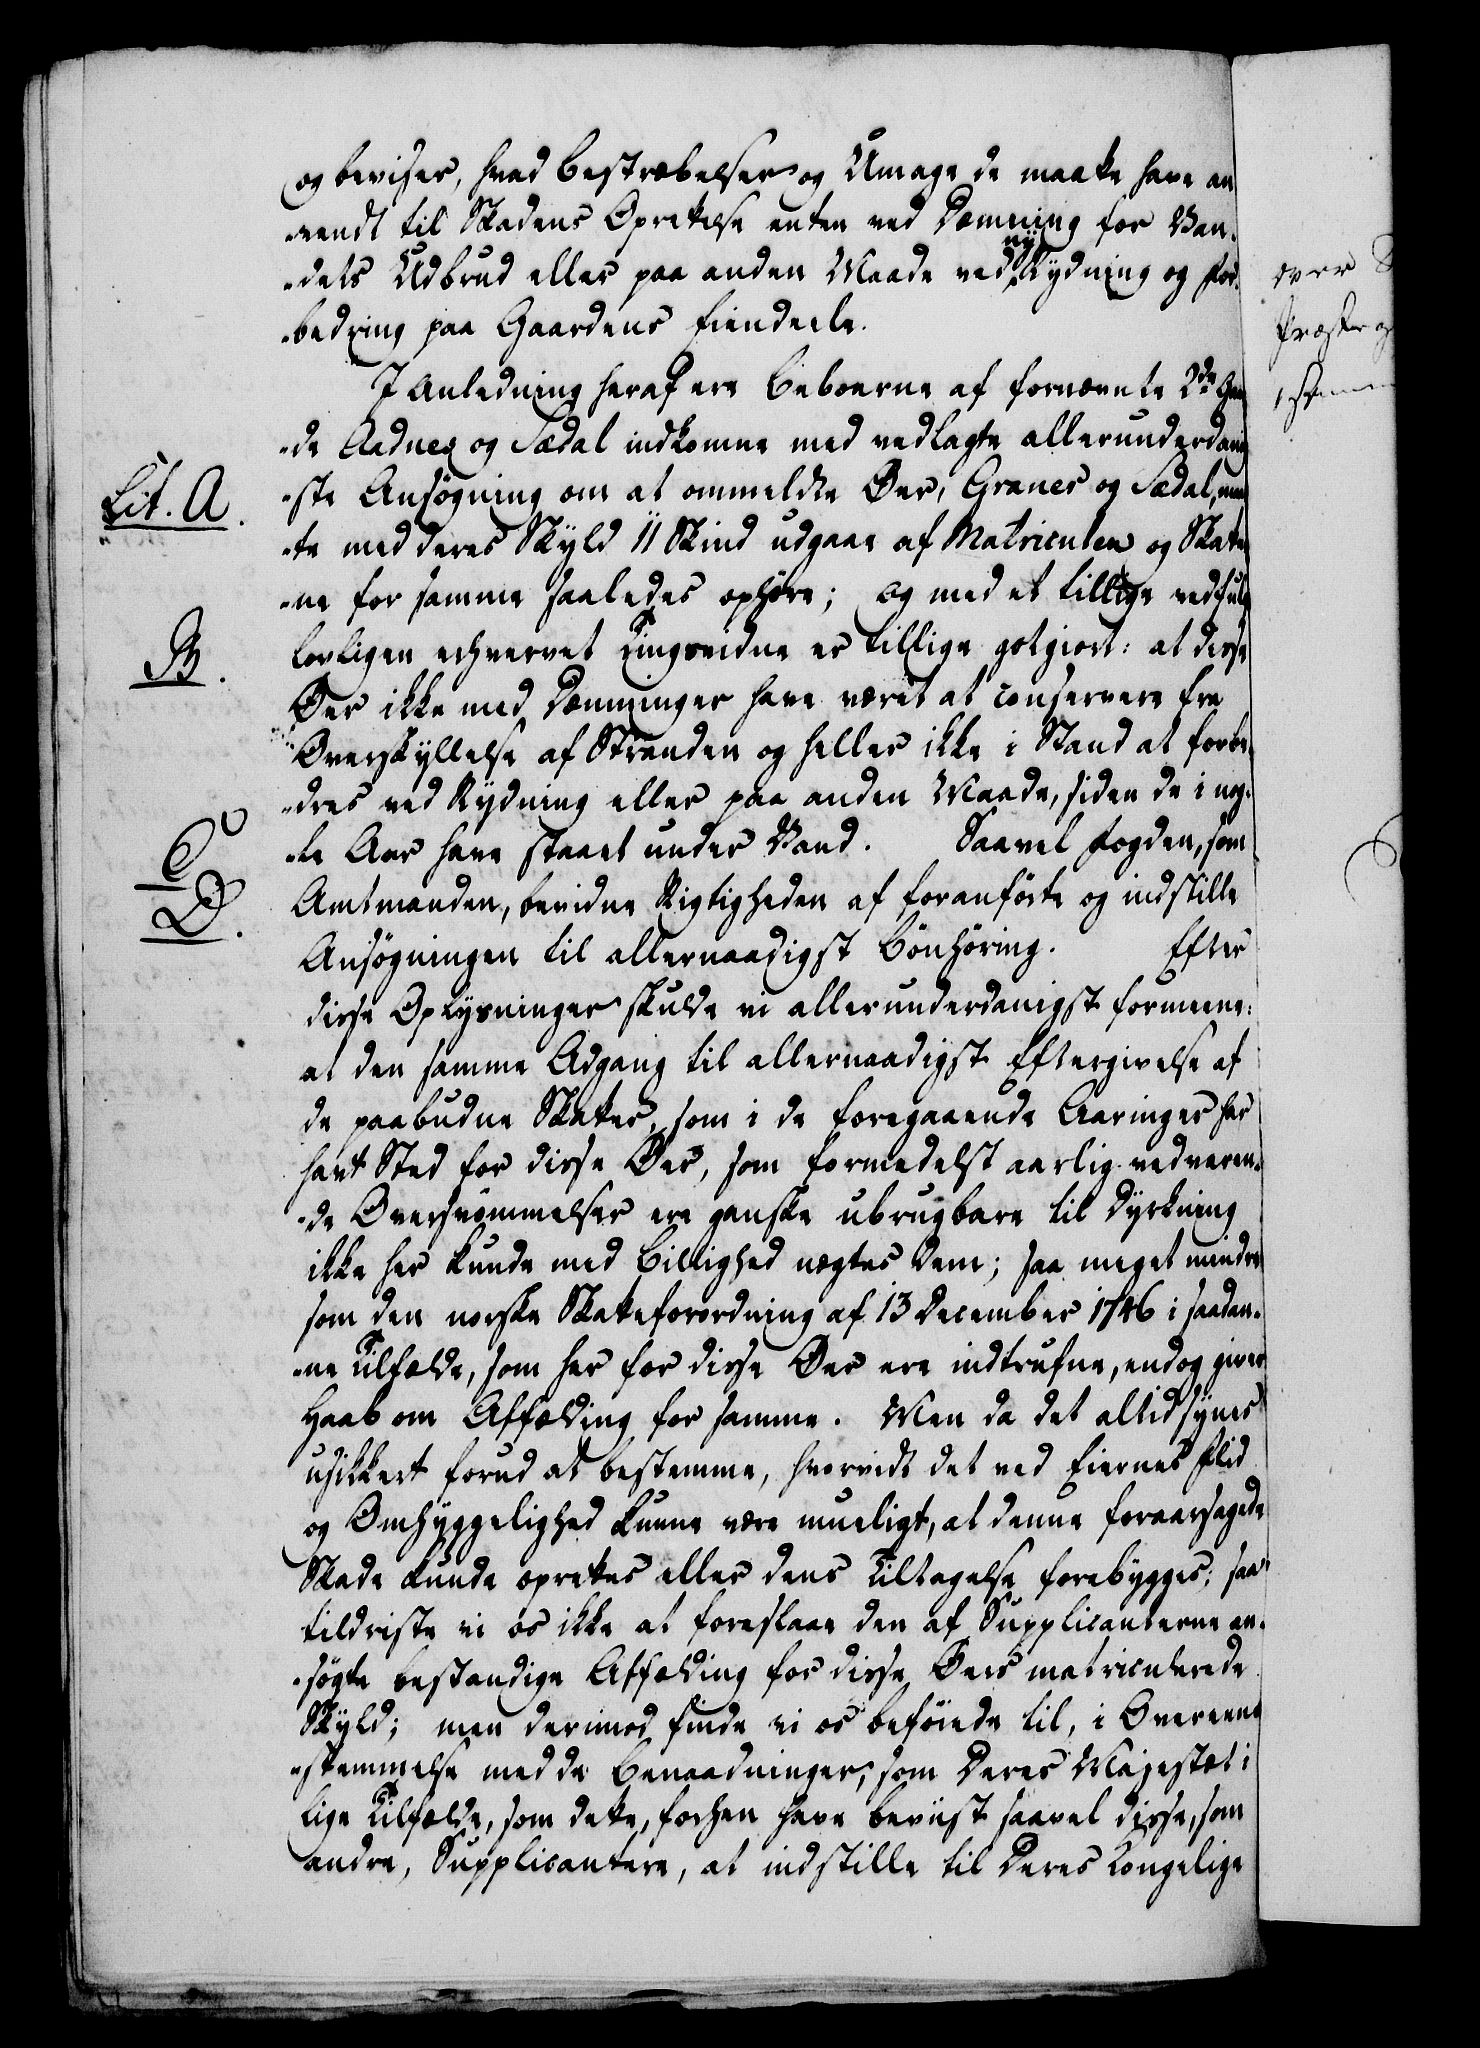 og beviser, hvad Bestræbelser og Umage de maatte have an
-vendt til Skadens Oprettelse enten ved Dæmning for Van-
-dets Udbrud eller paa anden Maade ved ny Rydning og For-
-bedring paa Gaardens Eiendeele.
I Anledning heraf ere Beboerne af fornævnte 2de Gaar
-de Aadnes og Sædal indkomne med vedlagte allerunderdanig
Lit. A.
-ste Ansøgning om at ommeldte Øer, Granes og Sædal, maat
-te med deres Skyld 11 Skind udgaae af Matriculen og Skatter
-ne for samme saaledes ophøre; og med et tillige vedfulgt
B.
lovligen erhvervet Tingsvidne er tillige gotgiort: at disse
Øer ikke med Dæmninger have været at conservere fra
Overskyllelse af Stranden og heller ikke i Stand at forbe-
-dres ved Rydning eller paa anden Maade, siden de i nog-
-le Aar have staaet under Vand. Saavel Fogden, som
C
D.
Amtmanden, bevidne Rigtigheden af foranførte og indstille
Ansøgningen til allernaadigst Bønhøring. Efter
disse Oplysninger skulde vi allerunderdanigst formeene:
at den samme Adgang til allernaadigst Eftergivelse af
de paabudne Skatter, som i de foregaaende Aaringer har
havt Sted for disse Øer, som formedelst aarlig vedvaren-
-de Oversvømmelser ere ganske ubrugbare til Dyrkning
ikke her kunde med Billighed nægtes dem; saa meget mindre
som den norske Skatteforordning af 13 December 1746 i saadan-
-ne Tilfælde, som her for disse Øer ere indtrufne, endog giver
Haab om Affælding for samme. Men da det altid synes
usikkert forud at bestemme, hvorvidt det ved Eiernes Flid
og Omhyggelighed kunne være mueligt, at denne foraarsagede
Skade kunde oprettes eller dens Tiltagelse forebygges; saa
tildriste vi os ikke at foreslaae den af Supplicanterne an-
-søgte bestandige Affælding for disse Øers matriculerede
Skyld; men derimod finde vi os beføiede til, i Overeens
-stemmelse med de Benaadninger, som Deres Majestæt i
lige Tilfælde, som dette, forhen have beviist saavel disse, som
andre, Supplicantere, at indstille til Deres Kongelige
over